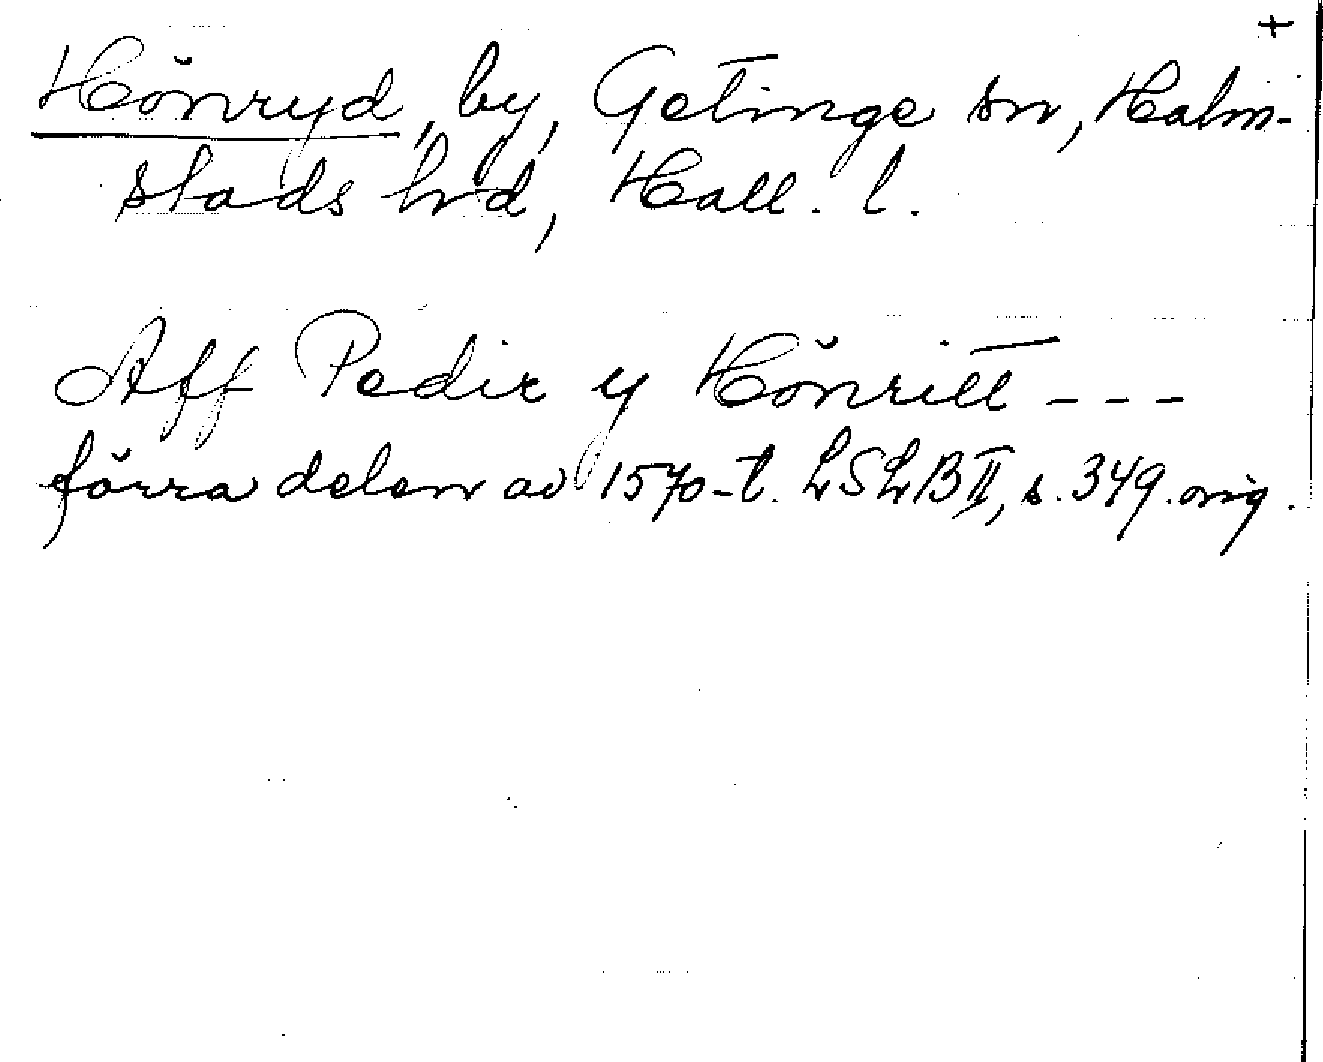 +
Hönryd, by, Getinge sn, Halm-
stads hrd, Hall. l.
Aff Pedir y Hönritt - - -
förra delen av 1570-t. LSLB II, s. 349. orig.